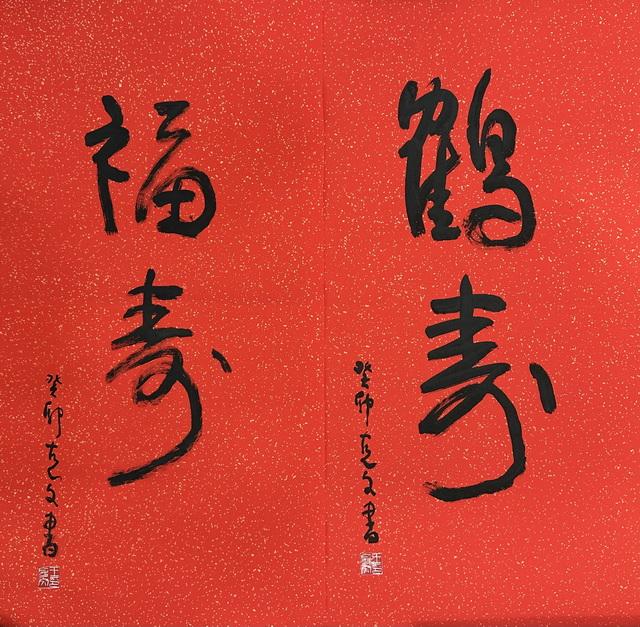 鶴寿
癸卯克文書
福寿
癸卯克文書